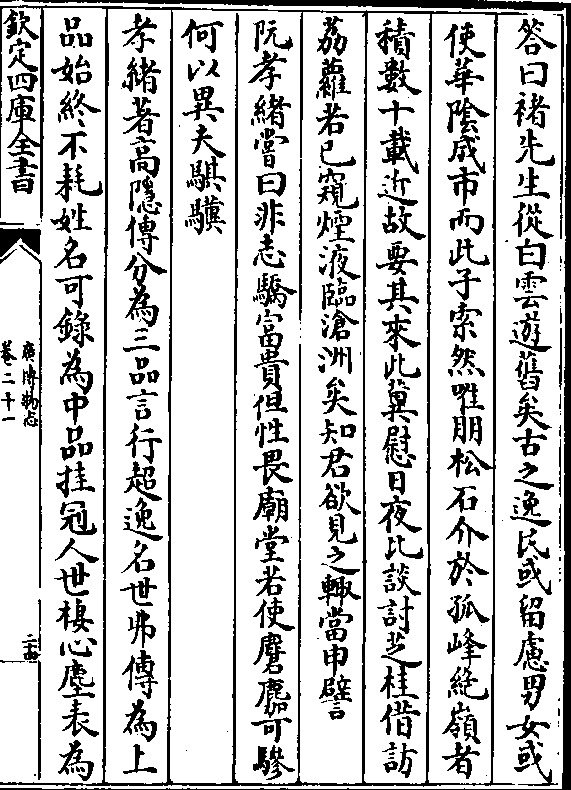 答曰褚先生從白雲遊舊矣古之逸民或留慮男女或
使華陰成市而此子索然唯朋松石介於孤峰絶嶺者
積數十載近故要其來此冀慰日夜比談討芝桂借訪
荔蘿若已窺煙液臨滄洲矣知君欲見之輙當申譬
阮孝緒嘗曰非志驕富貴但性畏廟堂若使麏麚可驂
何以異夫騏驥
孝緒著高隱傳分為三品言行超逸名世弗傳為上
品始終不耗姓名可錄為中品挂冠人世棲心塵表為
欽定四庫全書
廣博物志
卷二十一